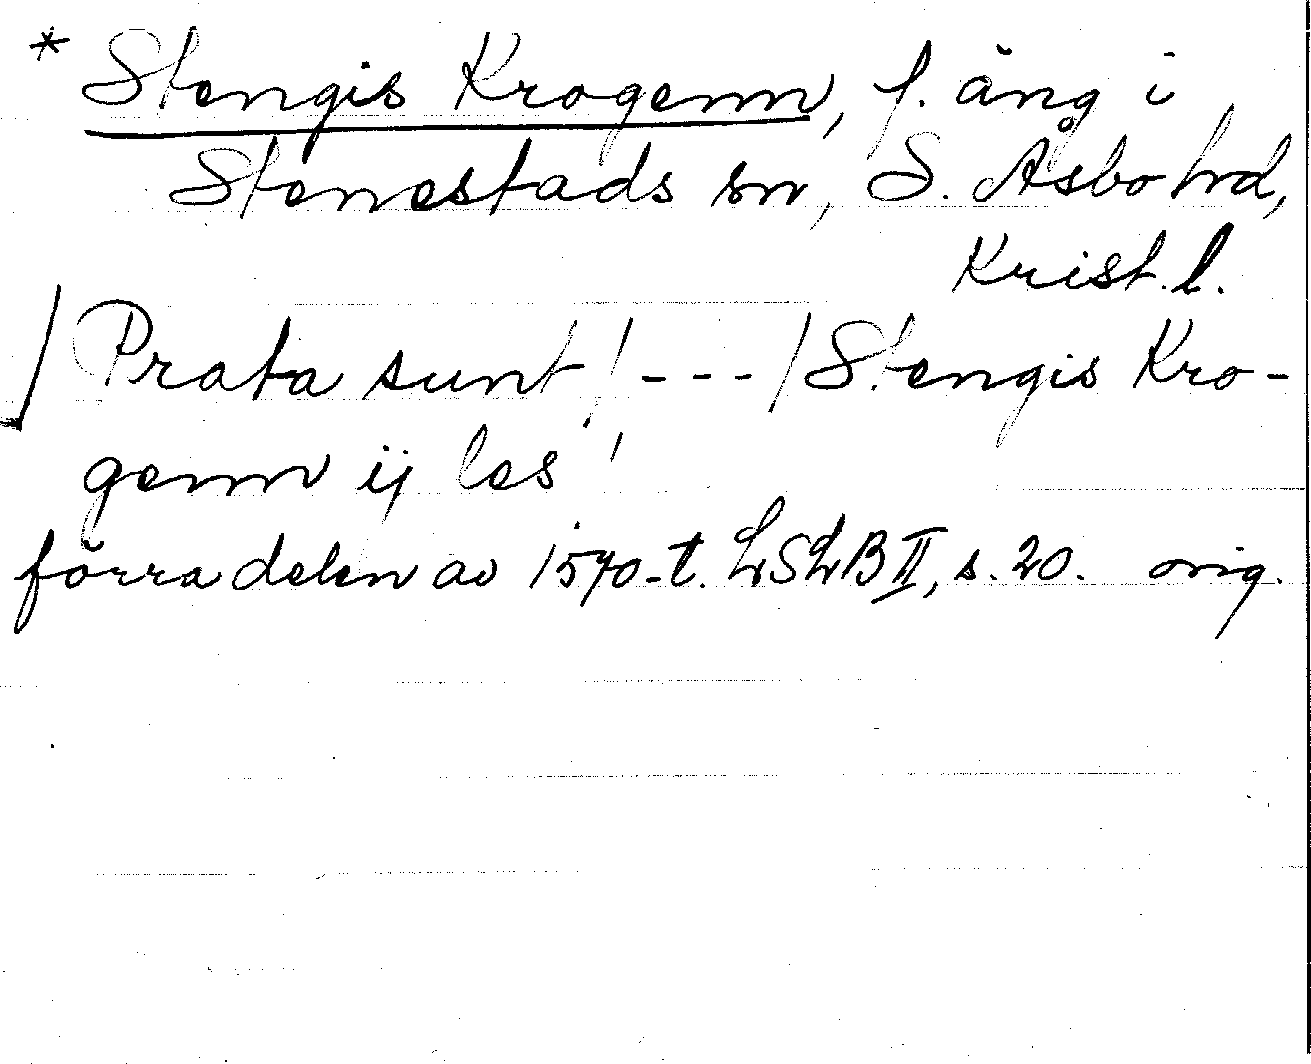 * Stengis Krogenn, f. äng i
Stenestads sn, S. Åsbo hrd,
Krist. l.
/Prata sunt/---/Stengis Kro-
genn ij les
förra delen av 1570-t. LSLB II, s. 20. orig.